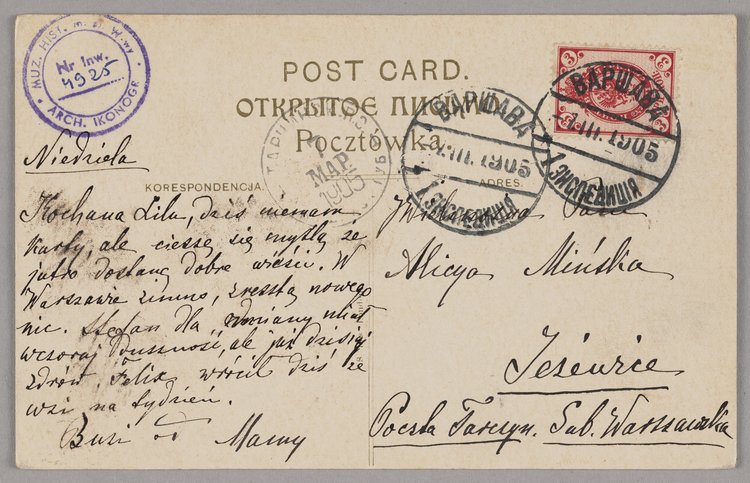 MUZ. HIST. m. st. W-wy
Nr Inw.
4925
ARCH. IKONOGR.
POST CARD.
ОТКРЫТОЕ ПИСЬМО.
Pocztówka.
3 3
3 3
ВАРШАВА
-1.III.1905
1 ЭКСПЕДИЦІЯ
ВАРШАВА
-1.III.1905
1 ЭКСПЕДИЦІЯ
МАР.
1905
Niedziela
KORESPONDENCJA.
ADRES.
Kochana Lilu, dziś niemam
karty, ale cieszę się myślą że
jutro dostanę dobre wieści. W
Warszawie zimno, zresztą nowego
nic. Stefan dla odmiany miał
wczoraj duszność, ale już dzisiaj
zdrów Felix wrócił dziś ze
wsi na tydzień.
Buzi od Mamy
Wielmożna Pani
Alicya Mińska
Jeżewice
Poczta Tarczyn. Gub. Warszawska